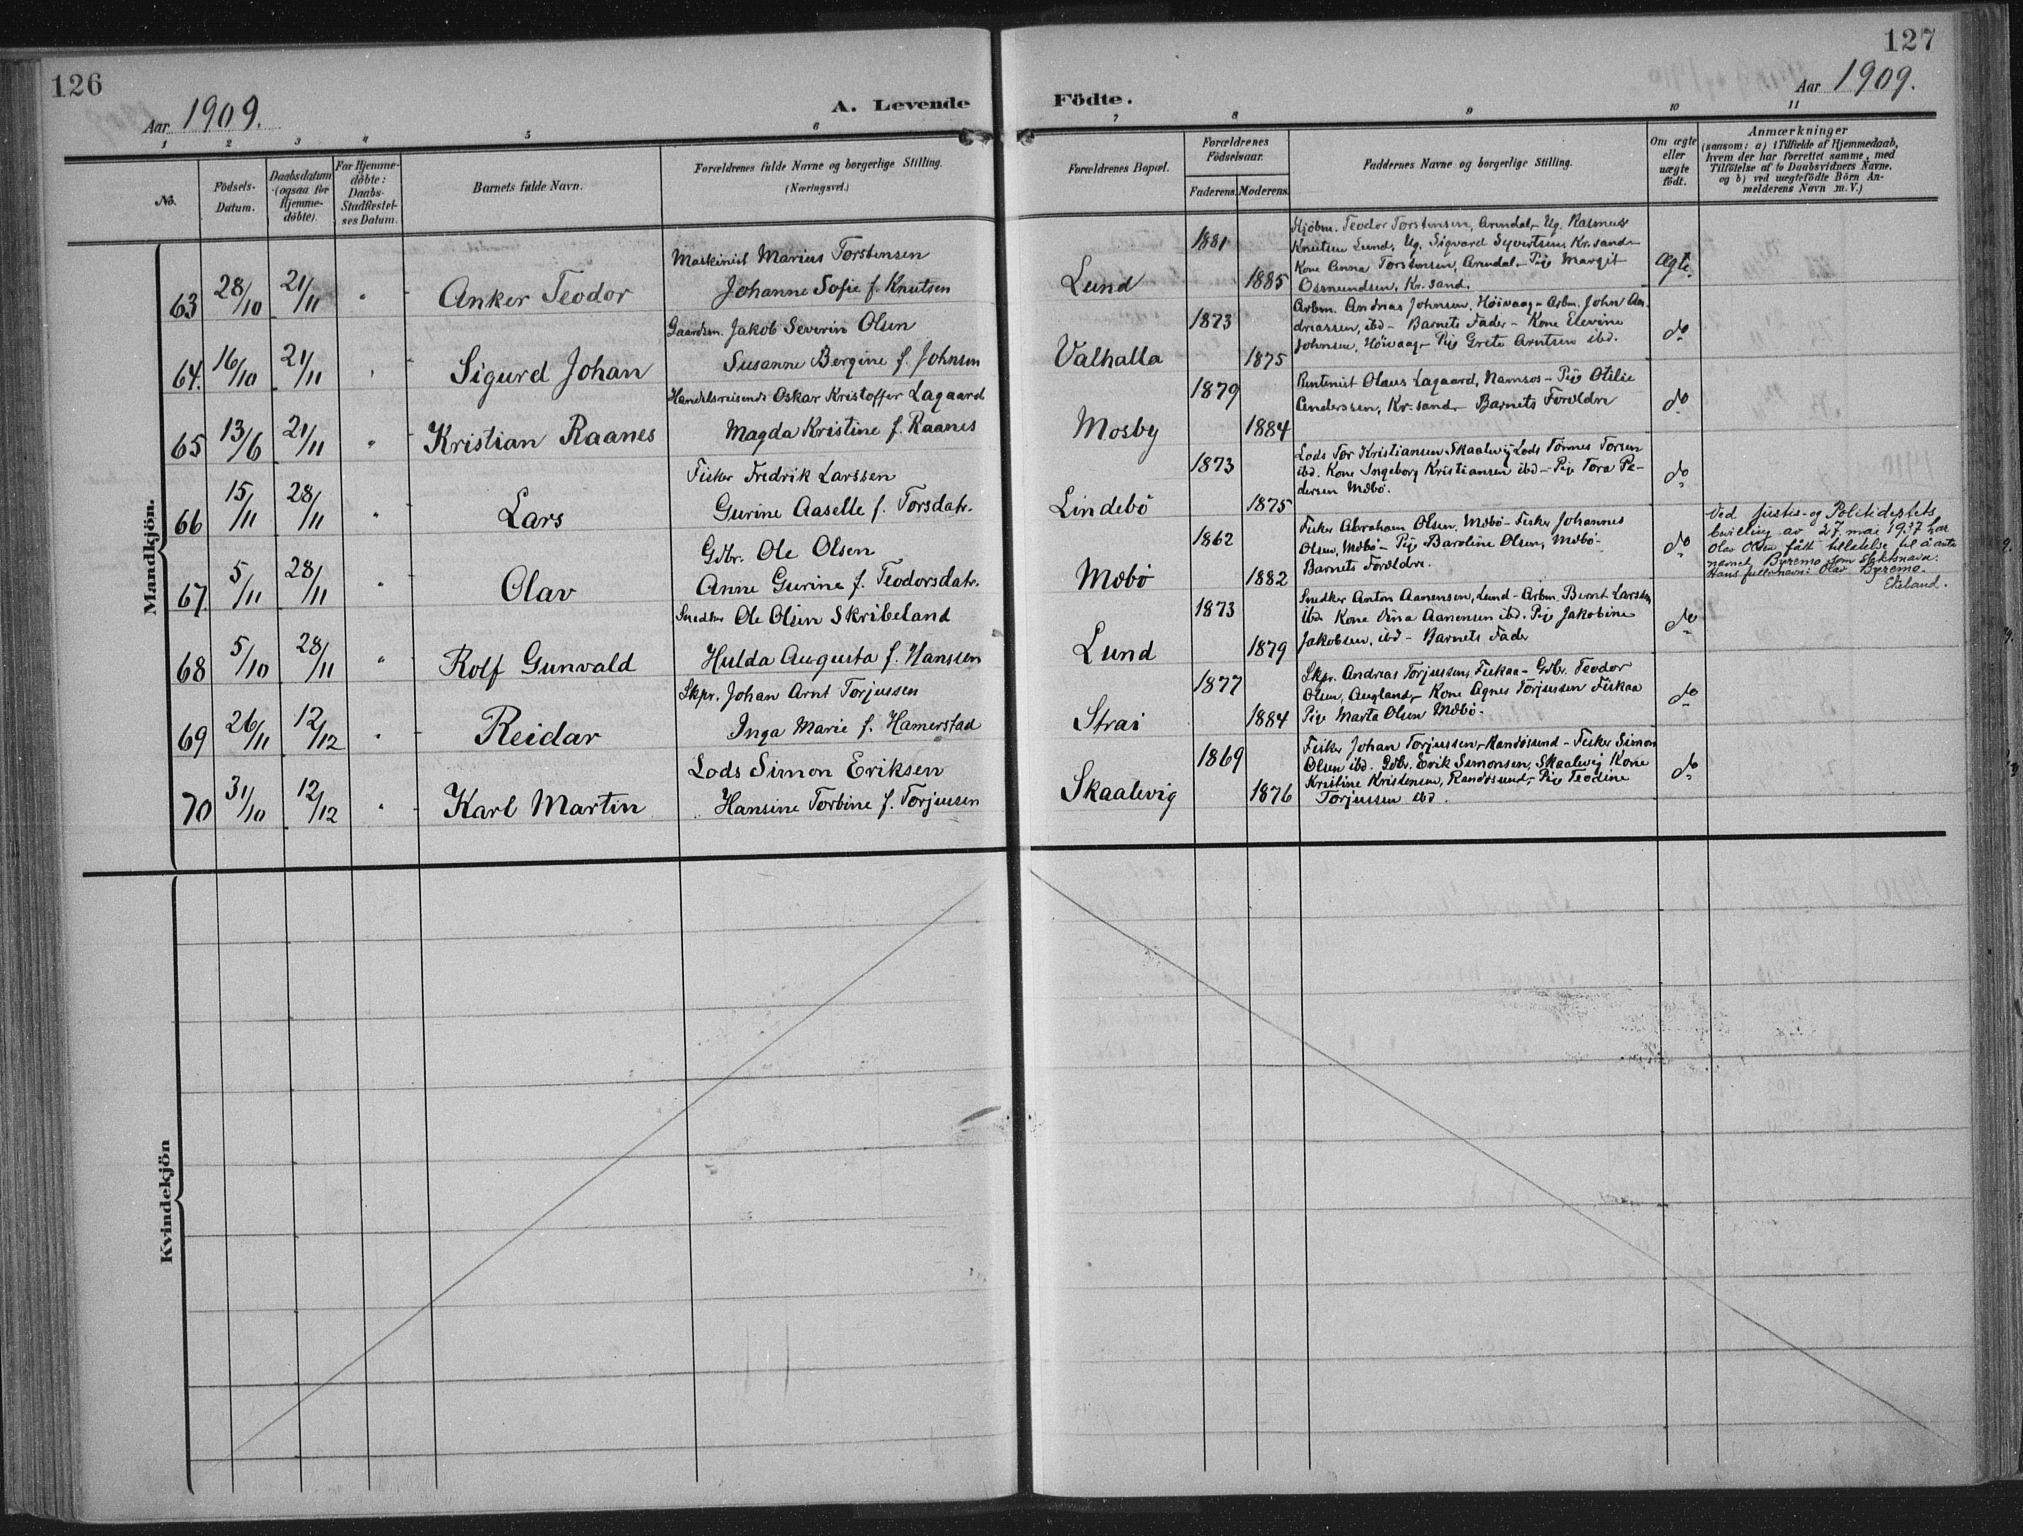 126
Aar 1909.
A. Levende
Födte.
127
Aar 1909.
1 2 3 4 5 6 7 8 9 10 11
No.
Födsels-
Datum.
Daabsdatum
(ogsaa for
Hjemme-
döbte).
For Hjemme-
döbte:
Daabs-
Stadfæstel-
ses Datum.
Barnets fulde Navn.
Forældrenes fulde Navne og borgerlige Stilling.
(Næringsvei.)
Forældrenes Bopæl.
Forældrenes
Födselsaar.
Faderens. Moderens.
Faddernes Navne og borgerlige Stilling.
Om ægte
eller
uægte
födt.
Anmærkninger
(saasom: a) i Tilfælde af Hjemmedaab,
hvem der har forrettet samme, med
Tilföielse af to Daabsvidners Navne.
og b) ved uægtefödte Börn An-
melderens Navn m.V.)
Mandkjön.
63 28/10 21/11 " Anker Teodor
Maskinist Marius Torstensen
Johanne Sofie f. Knutsen
Lund 1881 1885
Kjøbm. Teodor Torstensen, Arendal, Ug. Rasmus
Knutsen Lund, Ug. Sigvard Syvertsen, Kr.sand-
Kone Anna Torstensen, Arendal - Pige Margit
Osmundsen, Kr.sand.
Ægte.
64. 16/10 21/11 " Sigurd Johan
Gaardm. Jakob Severin Olsen
Susanne Bergine f. Johnsen
Valhalla 1873 1875
Arbm. Andreas Johnsen, Høivaag - Arbm. John An-
dreassen, ibd - Barnets Fader - Kone Elevine
Johnsen, Høivaag - Pige Grete Arntsen ibd.
do
65 13/6 21/11 " Kristian Raanes
Handelsreisende Oskar Kristoffer Lagaard
Magda Kristine f. Raanes
Mosby 1879 1884
Rentenist Olaus Lagaard, Namsos - Pige Otilie
Anderssen, Kr.sand - Barnets Forældre
do
66 15/11 28/11 " Lars
Fisker Fredrik Larssen
Gurine Aaselle f. Torsdatr.
Lindebö 1873 1875
Lods Tor Kristiansen Skaalevig Lods Tønnes Torsen
ibd. Kone Ingeborg Kristiansen ibd - Pige Tora Pe-
dersen Mæbö.
do
67. 5/11 28/11 " Olav
Gdbr. Ole Olsen
Anne Gurine f. Teodorsdatr.
Mæbö 1862 1882
Fisker Abraham Olsen, Mæbö - Fisker Johannes
Olsen, Mæbö - Pige Baroline Olsen, Mæbö -
Barnets Forældre.
do
Ved Justis- og Politideptets
bevilling av 27. mai 1937 har
Olav Olsen fått tillatelse til å anta
navnet Byremo som slektsnavn.
Hans fulle navn: Olav Byremo.
Ekeland.
68 5/10 28/11 " Rolf Gunvald
Snedker Ole Olsen Skribeland
Hulda Augusta f. Hanssen
Lund 1873 1879
Snedker Anton Aanensen, Lund - Arbm. Bernt Larsen
ibd Kone Dina Aanensen ibd. Pige Jakobine
Jakobsen, ibd - Barnets Fader
do
69 26/11 12/12 " Reidar
Skpr. Johan Arnt Torjussen
Inga Marie f. Hamerstad
Strai 1877 1884
Skpr. Andreas Torjussen, Fiskaa - Gdbr. Teodor
Olsen, Augland, - Kone Agnes Torjussen Fiskaa
Pige Marta Olsen Mæbö -
do
70 31/10 12/12 " Karl Martin
Lods Simon Eriksen
Hansine Torbine f. Torjussen
Skaalevig 1869 1876
Fisker Johan Torjussen, Randösund - Fisker Simon
Olsen ibd. Gdbr. Erik Simonsen, Skaalevig Kone
Kristine Kristensen, Randösund, - Pige Teodine
Torjussen ibd.
do
Kvindekjön